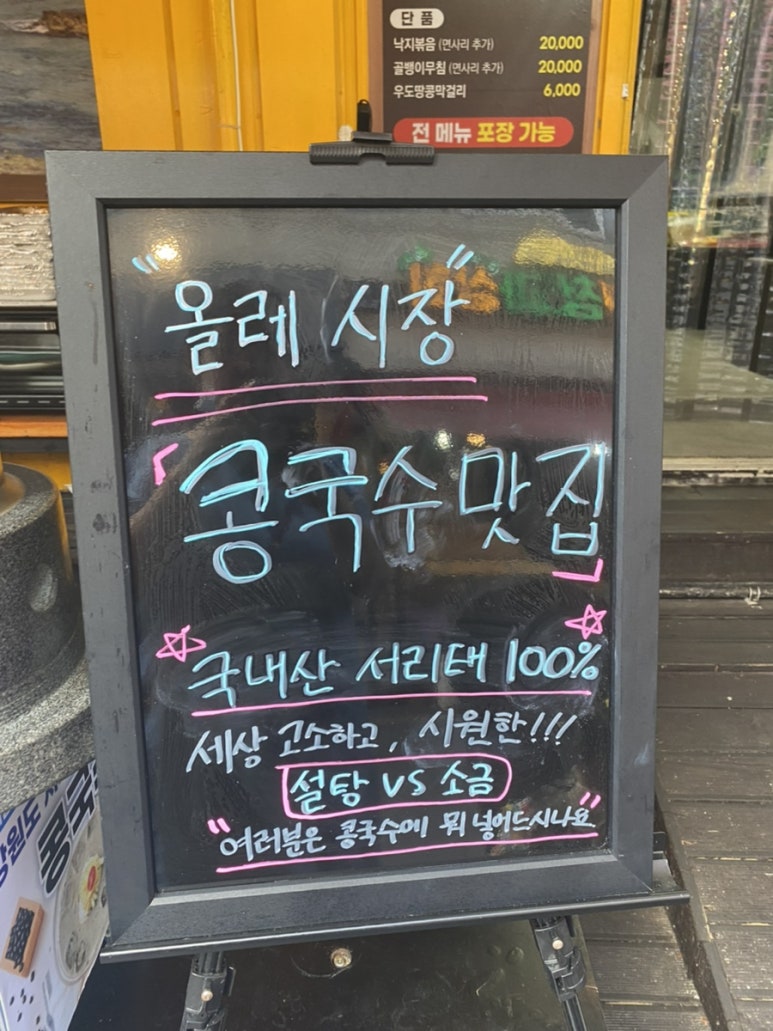 단 품
낙지볶음 (면사리 추가) 20,000
골뱅이무침 (면사리 추가) 20,000
우도땅콩막걸리 6,000
전 메뉴 포장 가능
"올레 시장"
「콩국수맛집」
국내산 서리태 100%
세상 고소하고, 시원한!!!
설탕 vs 소금
"여러분은 콩국수에 뭐 넣어드시나요"